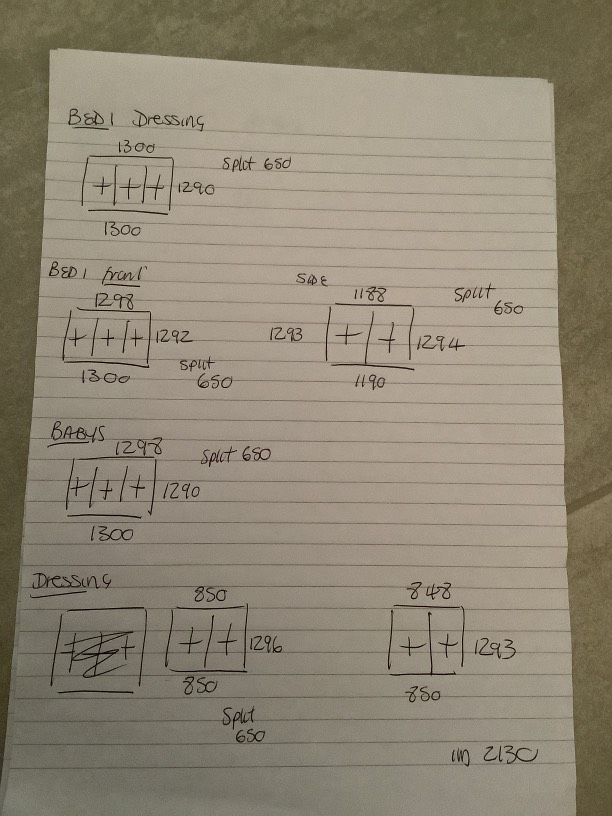 BED 1 Dressing
1300
Split 650
1290
1300
BED 1 front
SIDE
1298
1188
Split
650
1292
1293
1294
1300
Split
650
1190
BABYS
1298
Split 650
1290
1300
Dressing
850
848
1296
1293
850
850
Split
650
2130